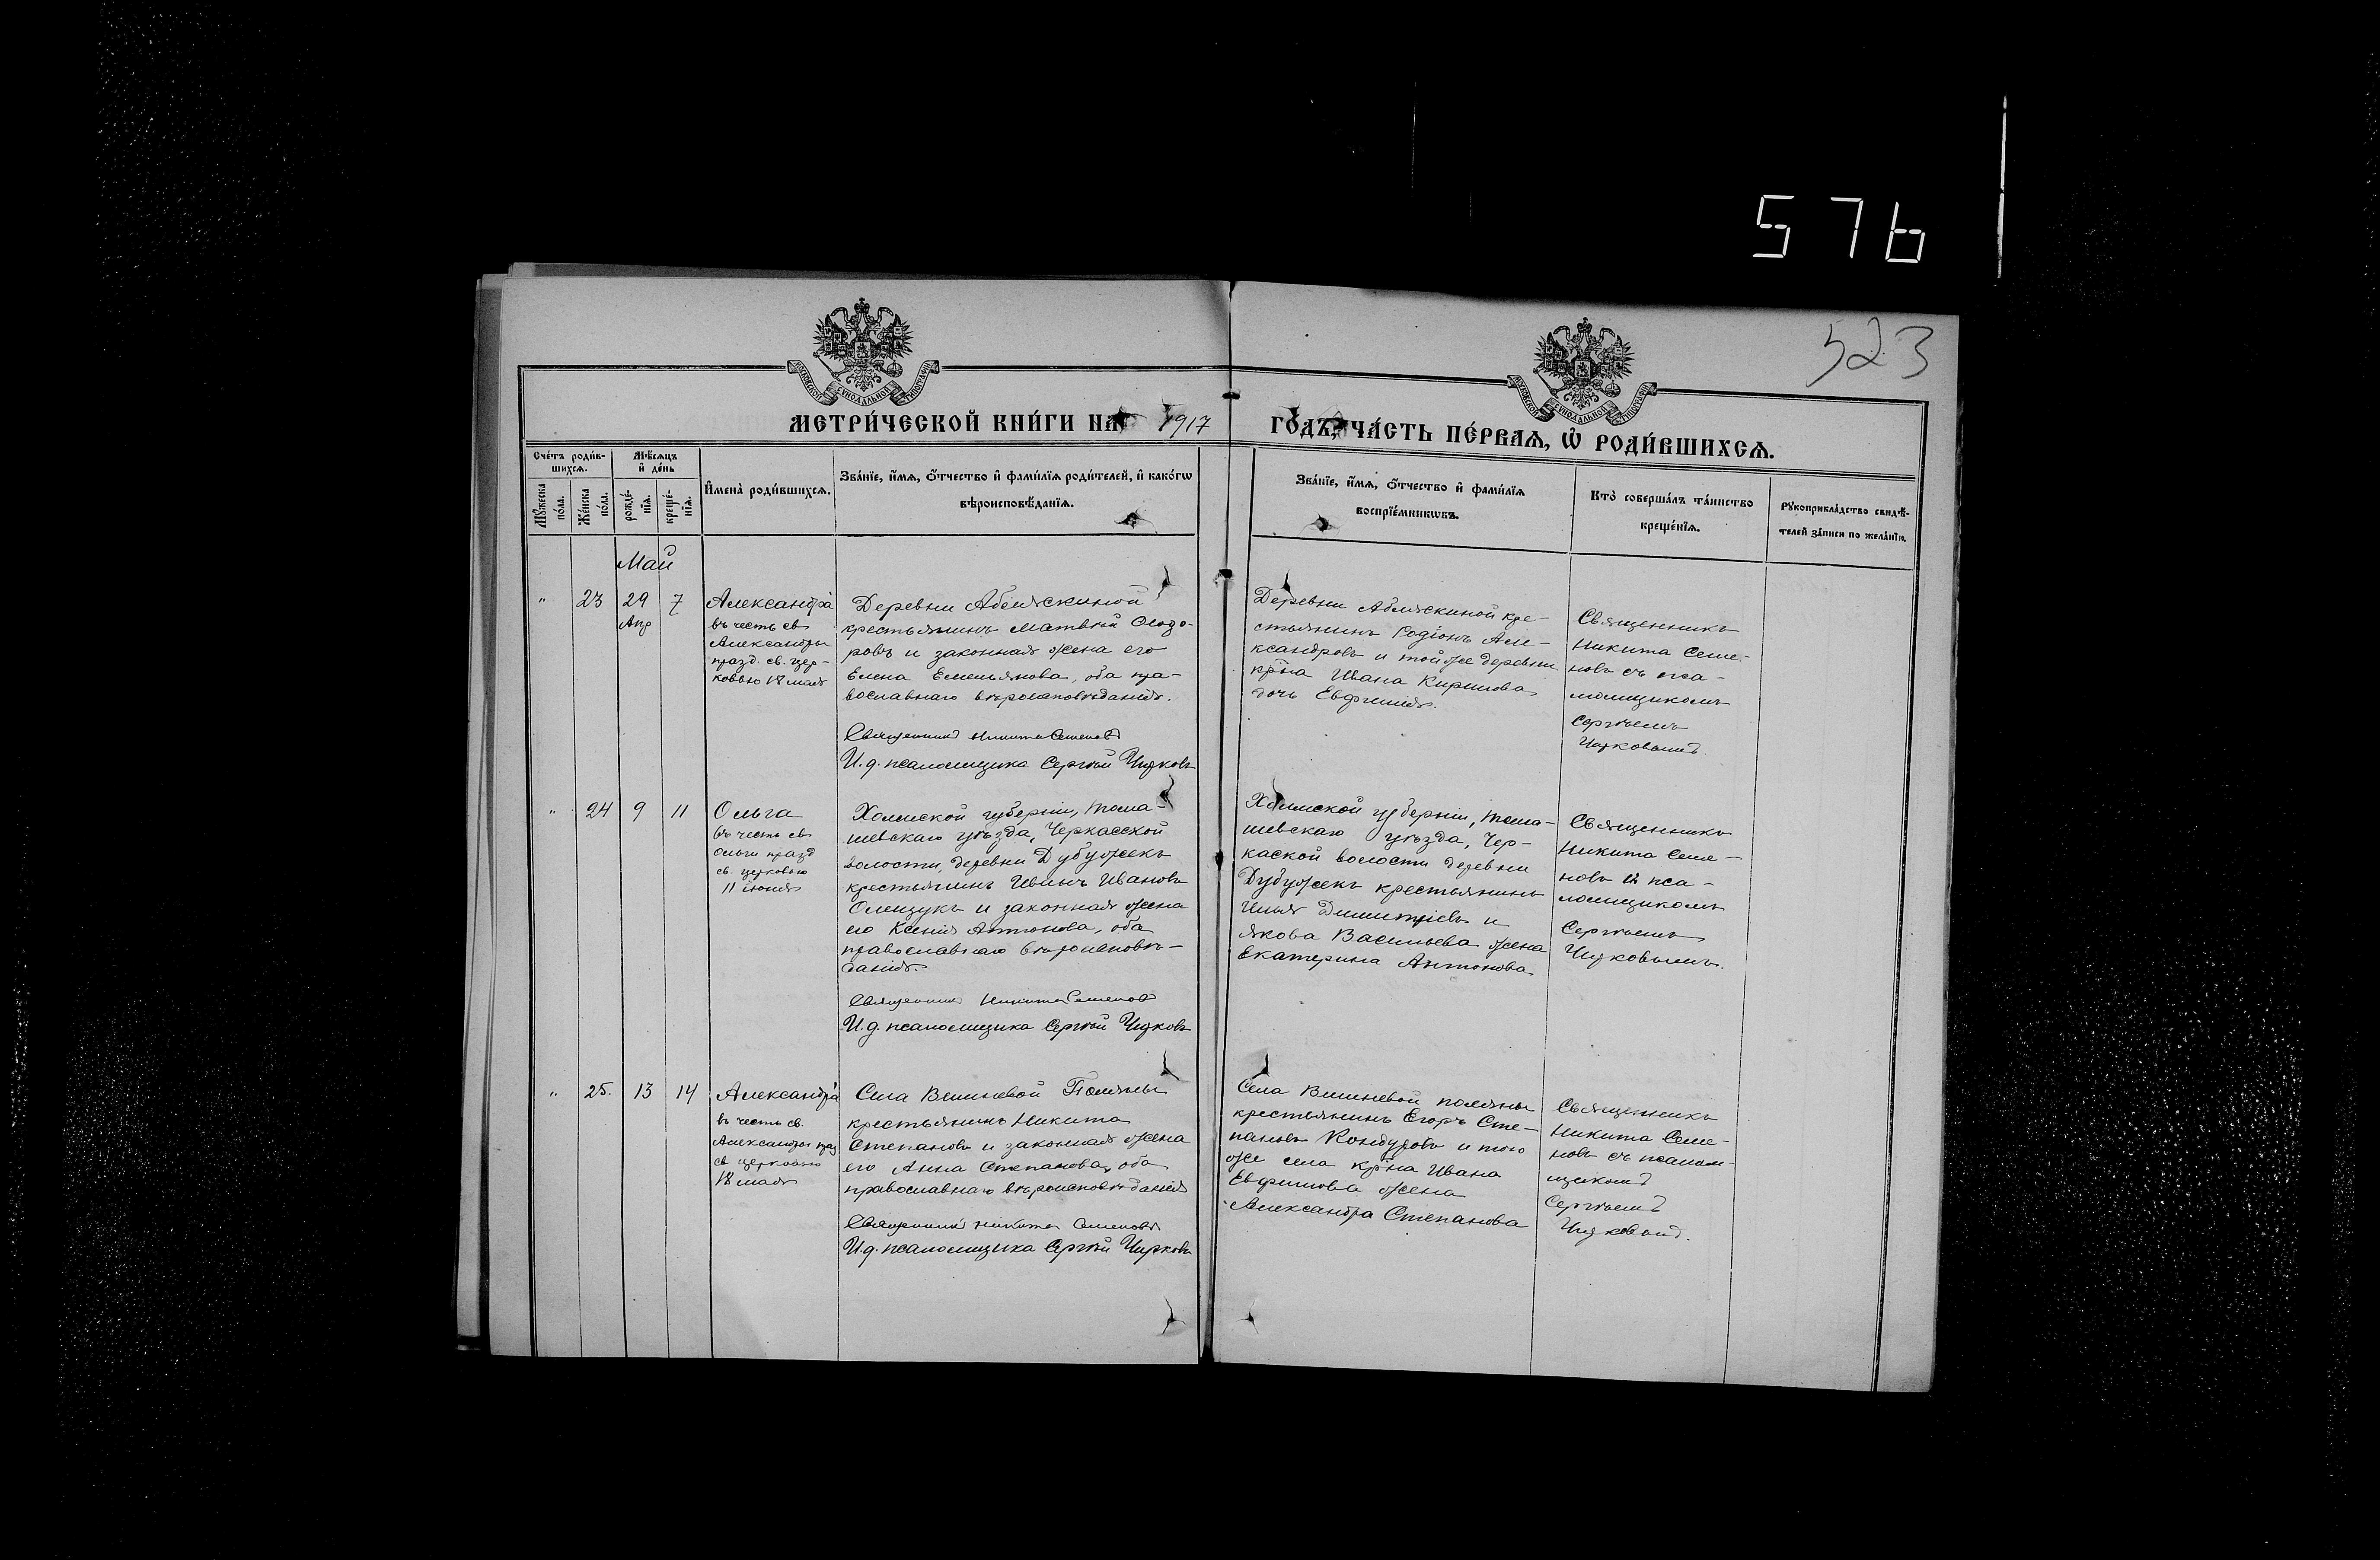 576
523
МОСКОВСКОЙ СѴНОДАЛЬНОЙ ТИПОГРАФІИ
МОСКОВСКОЙ СѴНОДАЛЬНОЙ ТИПОГРАФІИ
МЕТРИ́ЧЕСКОЙ КНИ́ГИ НА 1917
ГО́ДЪ, ЧА́СТЬ ПЕ́РВАЯ, Ѽ РОДИ́ВШИХСЯ.
Сче́тъ роди́в-
шихся.
Мѣ́сяцъ
и҆ де́нь
Мꙋ́жеска
по́ла.
Же́нска
по́ла.
рожде́-
нїя.
креще́-
нїя.
И҆мена̀ роди́вшихся.
Зва́нїе, и҆́мя, ѻ҆́тчество и҆ фами́лїя роди́телей, и҆ како́гѡ
вѣроисповѣ́данїя.
Зва́нїе, и҆́мя, ѻ҆́тчество и҆ фами́лїя
воспрїе́мникѡвъ.
Кто̀ соверша́лъ та́инство
креще́нїя.
Рꙋкоприкла́дство свидѣ́-
телей за́писи по жела́нїю.
Май
" 23 29 7
Апр
Александра
въ честь св
Александры
празд. св. цер-
ковью 18 мая
Деревни Абляскиной
крестьянинъ Матвѣй
ровъ и законная жена его
Елена Емельянова, оба пра-
вославнаго вѣроисповѣданія.
Священникъ Никита Семеновъ
И.д. псаломщика Сергѣй Чирковъ
Деревни Абляскиной кре-
стьянинъ Родіонъ Але-
ксандровъ и той же деревни
кр-на Ивана Кириллова
дочь Евфимія.
Священникъ
Никита Семе-
новъ съ пса-
ломщикомъ
Сергѣемъ
Чирковымъ.
" 24 9 11
Ольга
въ честь св
Ольги празд
св. церковью
11 іюля
Холмской губерніи, Тома-
шевскаго уѣзда, Черкасской
волости, деревни Дубужекъ
крестьянинъ Иванъ Ивановъ
Олещукъ и законная жена
его Ксенія Антонова, оба
православнаго вѣроисповѣ-
данія.
Священникъ Никита Семеновъ
И.д. псаломщика Сергѣй Чирковъ
Холмской губерніи, Тома-
шевскаго уѣзда, Чер-
каской волости деревни
Дубужекъ крестьянинъ
Илья Димитріевъ и
Якова Васильева жена
Екатерина Антонова
Священникъ
Никита Семе-
новъ и пса-
ломщикомъ
Сергѣемъ
Чирковымъ.
" 25. 13 14
Александра
въ честь св.
Александры праз
св церковью
18 мая
Села Вишневой Поляны
крестьянинъ Никита
Степановъ и законная жена
его Анна Степанова, оба
православнаго вѣроисповѣданія
Священникъ Никита Семеновъ
И.д. псаломщика Сергѣй Чирковъ
Села Вишневой поляны
крестьянинъ Егоръ Сте-
пановъ Кондуровъ и того
же села кр-на Ивана
Евфимова жена
Александра Степанова
Священникъ
Никита Семе-
новъ съ псалом-
щикомъ
Сергѣемъ
Чирковымъ.